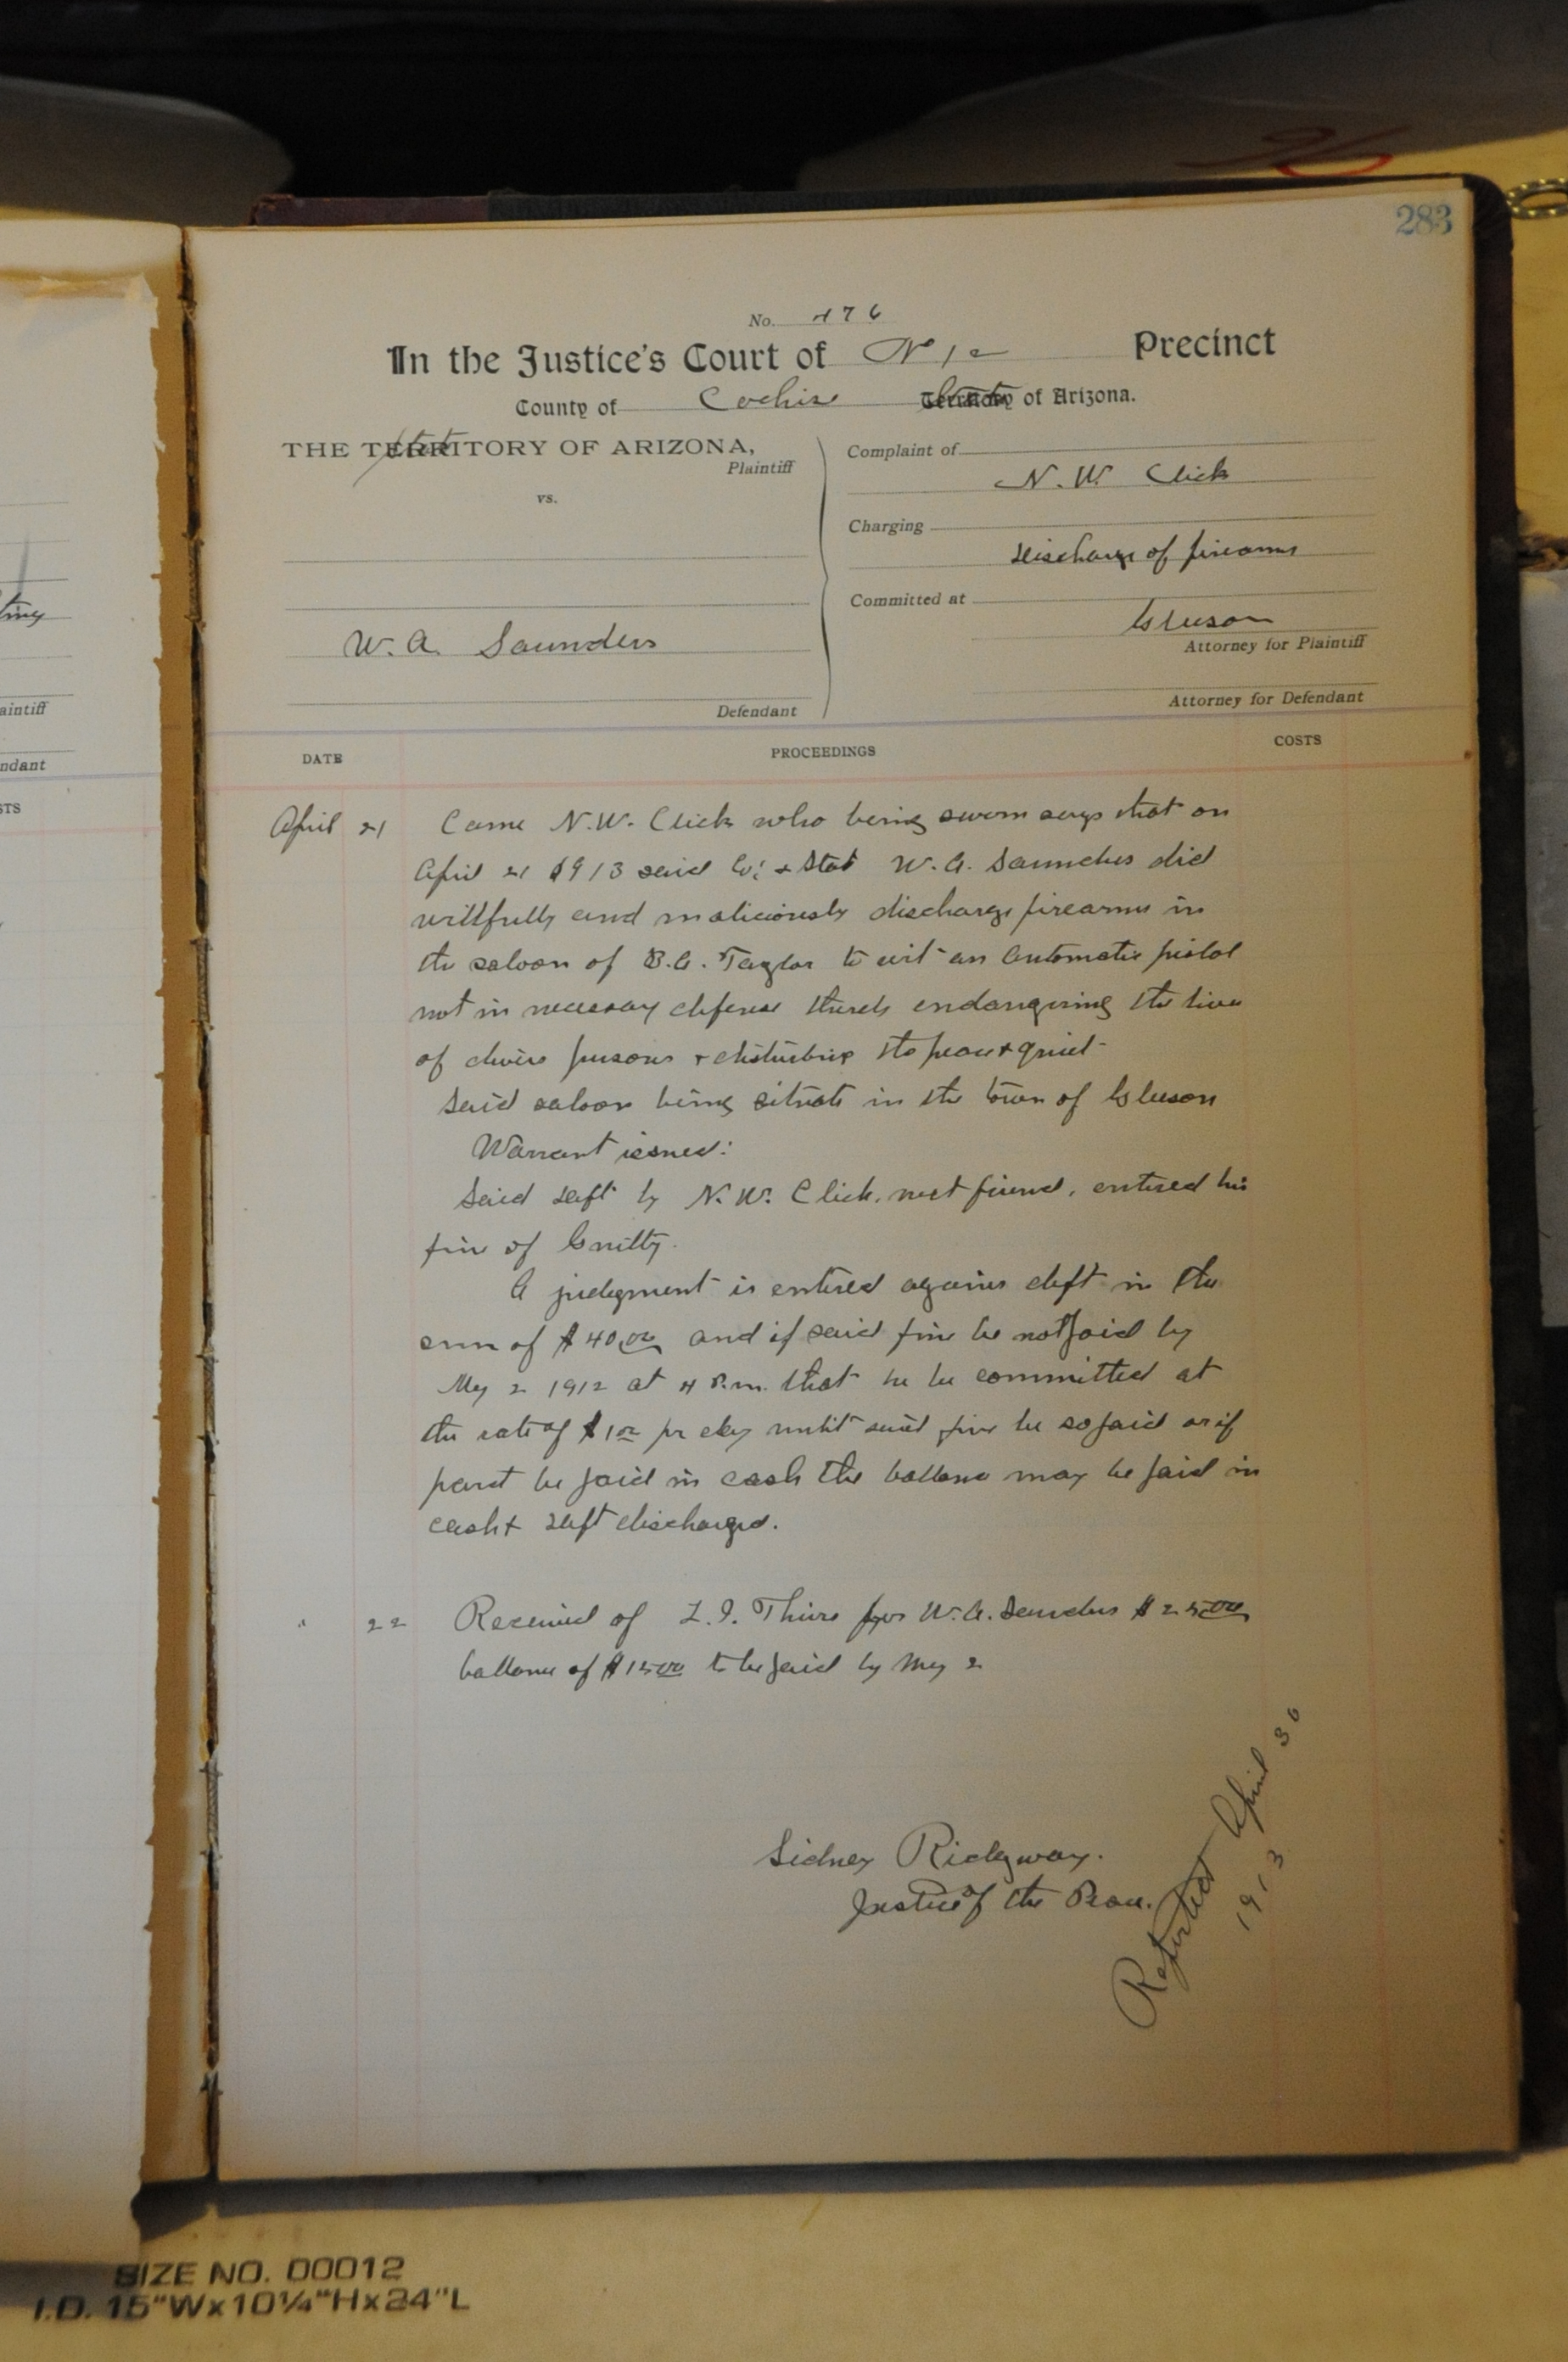 283
No. 476
In the Justice's Court of No 12 Precinct
County of Cochise State of Arizona.
THE State OF ARIZONA,
Plaintiff
vs.
W. A. Saunders
Defendant
Complaint of
N. W. Click
Charging
Discharge of firearms
Committed at
Gleeson
Attorney for Plaintiff
Attorney for Defendant
DATE PROCEEDINGS COSTS
April 21 Came N. W. Click who being sworn says that on
April 21 1913 said Co. & State W. A. Saunders did
willfully and maliciously discharge firearms in
the saloon of B. A. Taylor to wit an automatic pistol
not in necessary defense thereby endangering the lives
of divers persons & disturbing the peace & quiet
Said saloon being situate in the town of Gleeson
Warrant issued:
Said deft by N. W. Click, next friend, entered his
of Guilty.
A judgment is entered against deft in the
sum of $40.00 and if said fine be not paid by
May 2 1912 at 4 P.m. that he be committed at
the rate of $1.00 pr day until said fine be so paid or if
part be paid in cash the ballance may be paid in
cash & deft discharged.
" 22 Received of for W. A. Saunders $25.00
ballance of $15.00 to be paid by May 2
Sidney Ridgway.
Justice of the Peace.
Reported April 30
1913
tiny
aintiff
ndant
STS
SIZE NO. 00012
I.D. 15"Wx10¼"Hx24"L